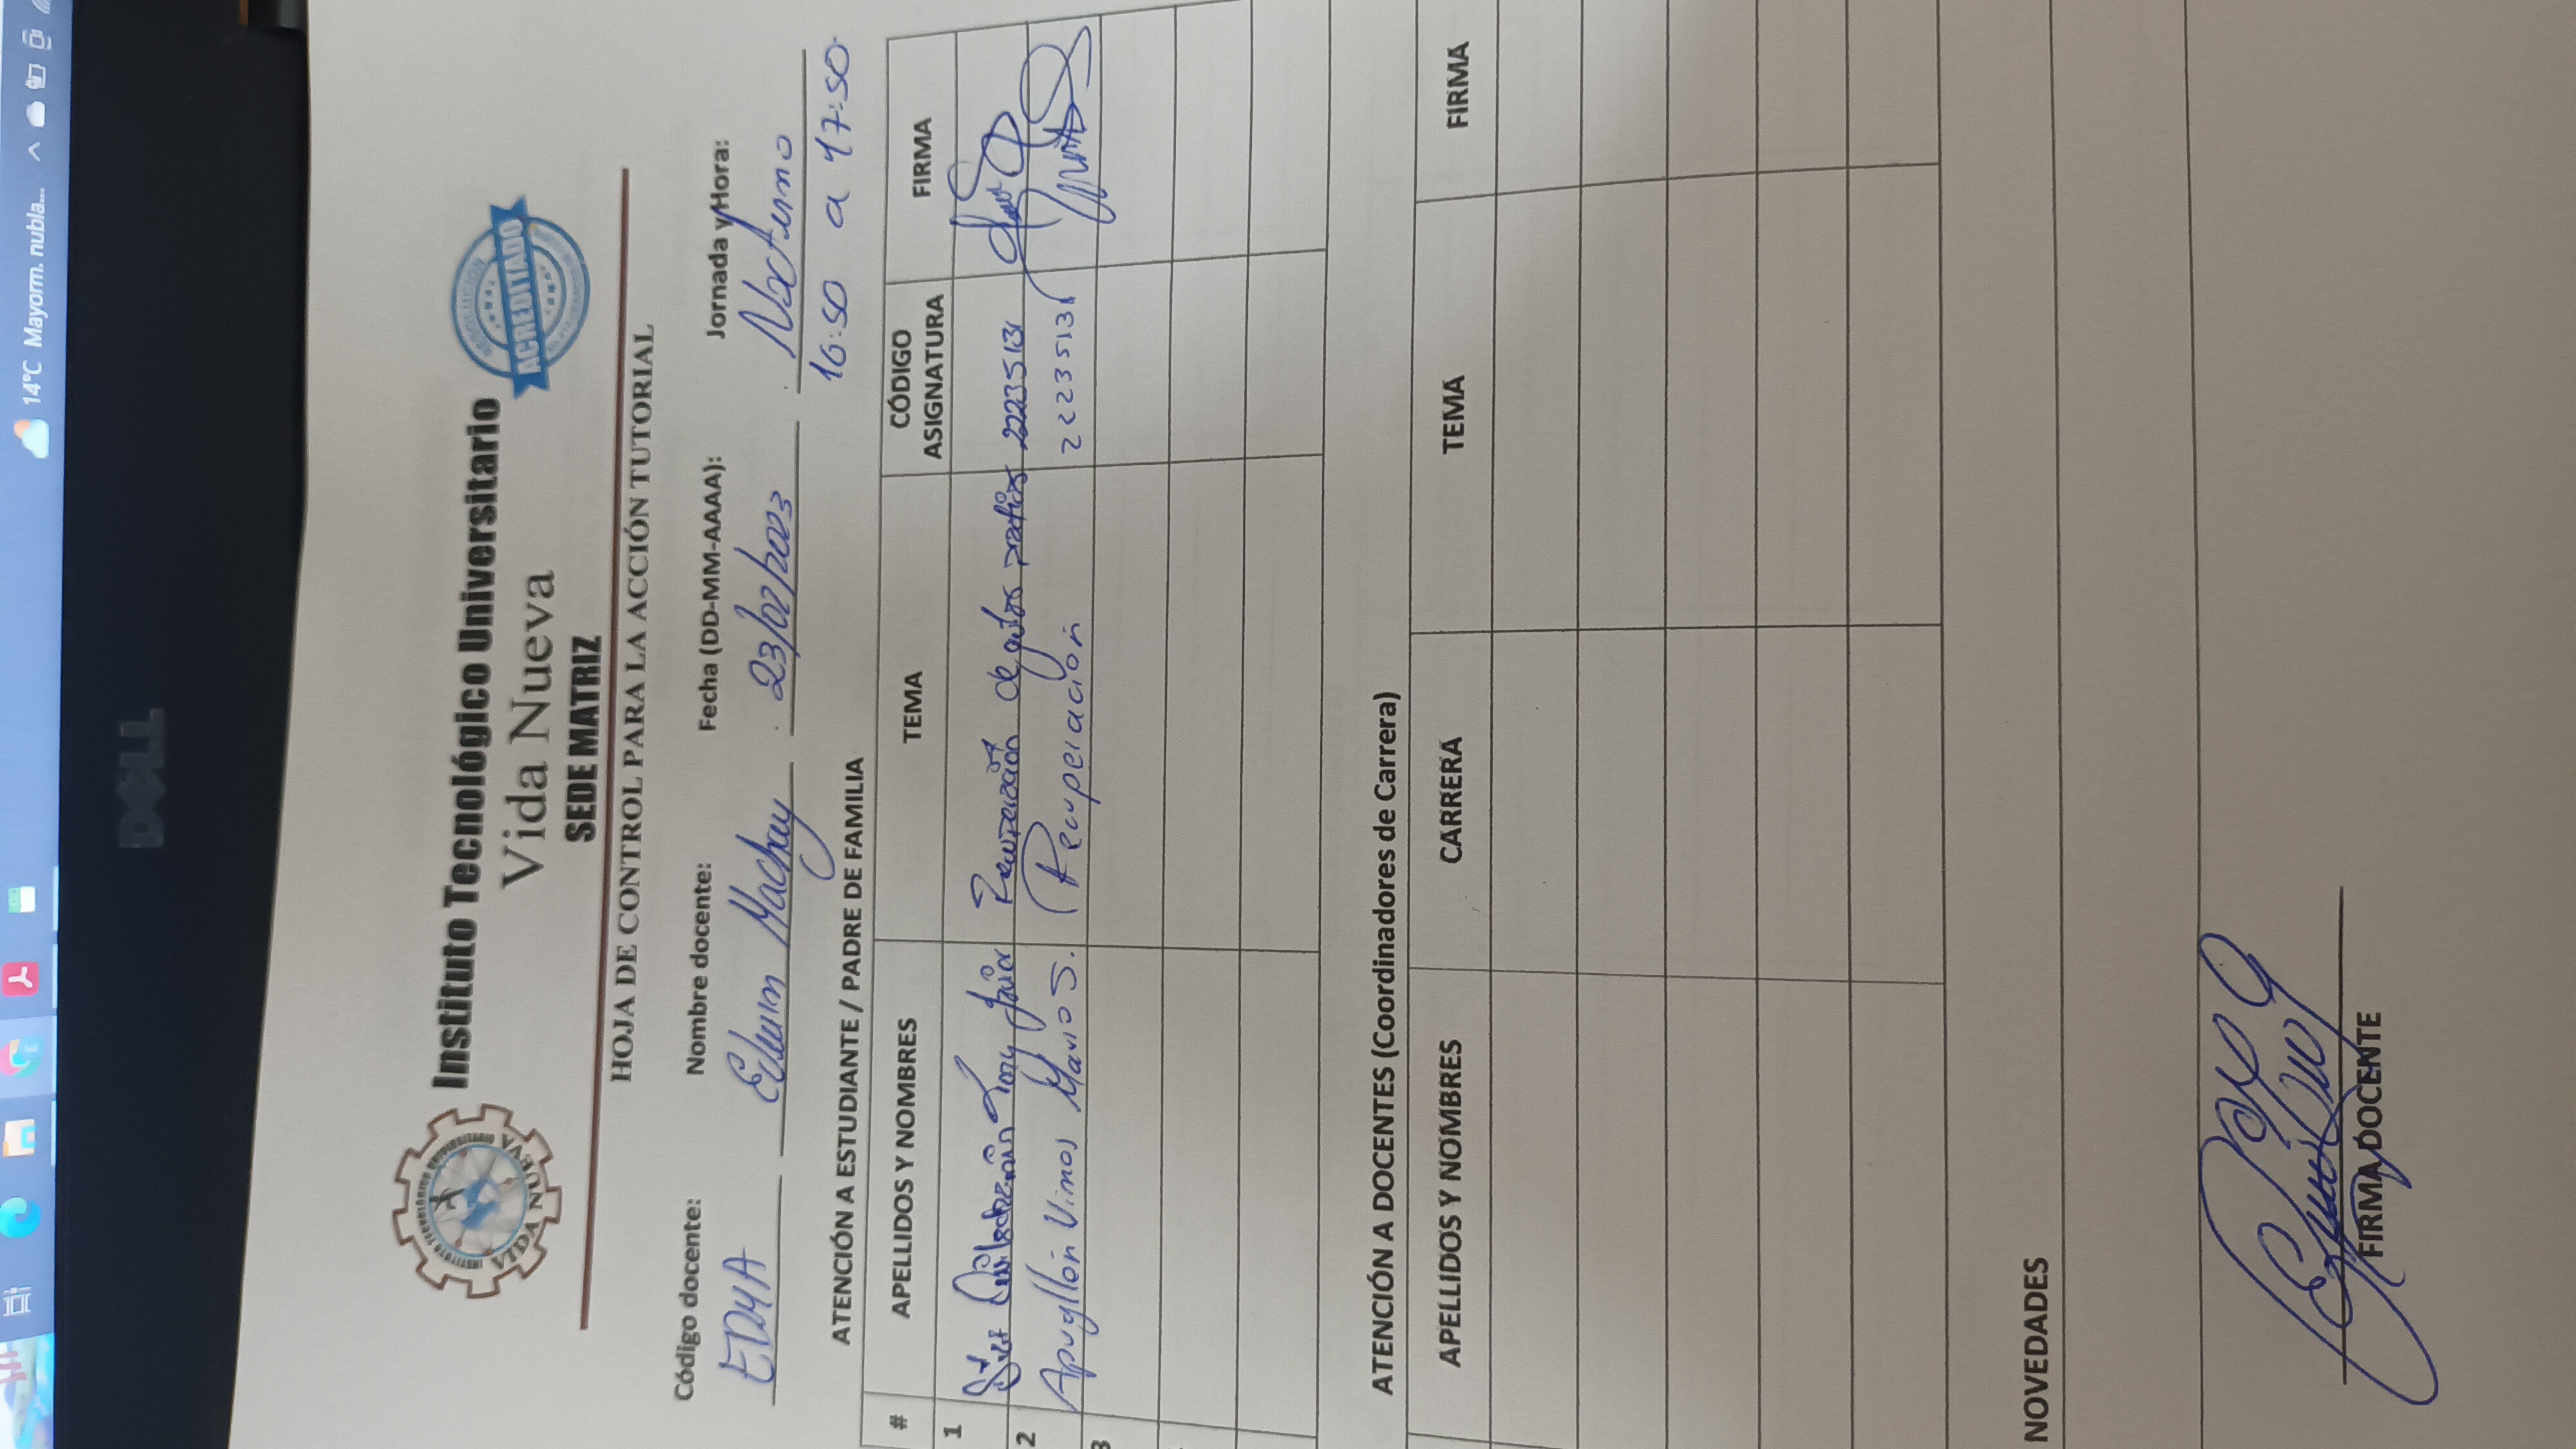 14°C Mayorm. nubla...
DELL
INSTITUTO TECNOLÓGICO UNIVERSITARIO
VIDA NUEVA
Instituto Tecnológico Universitario
Vida Nueva
SEDE MATRIZ
RESOLUCIÓN
ACREDITADO
HOJA DE CONTROL PARA LA ACCIÓN TUTORIAL
Código docente: Nombre docente: Fecha (DD-MM-AAAA): Jornada y Hora:
EDMA Edwin Machay 23/02/2023 Nocturno
16:50 a 17:50
ATENCIÓN A ESTUDIANTE / PADRE DE FAMILIA
# APELLIDOS Y NOMBRES TEMA CÓDIGO ASIGNATURA FIRMA
1 Tony Javier Recuperación de 22235131
2 Apugllón Vimos Mario S. Recuperación 22235131
3
ATENCIÓN A DOCENTES (Coordinadores de Carrera)
APELLIDOS Y NOMBRES CARRERA TEMA FIRMA
NOVEDADES
FIRMA DOCENTE